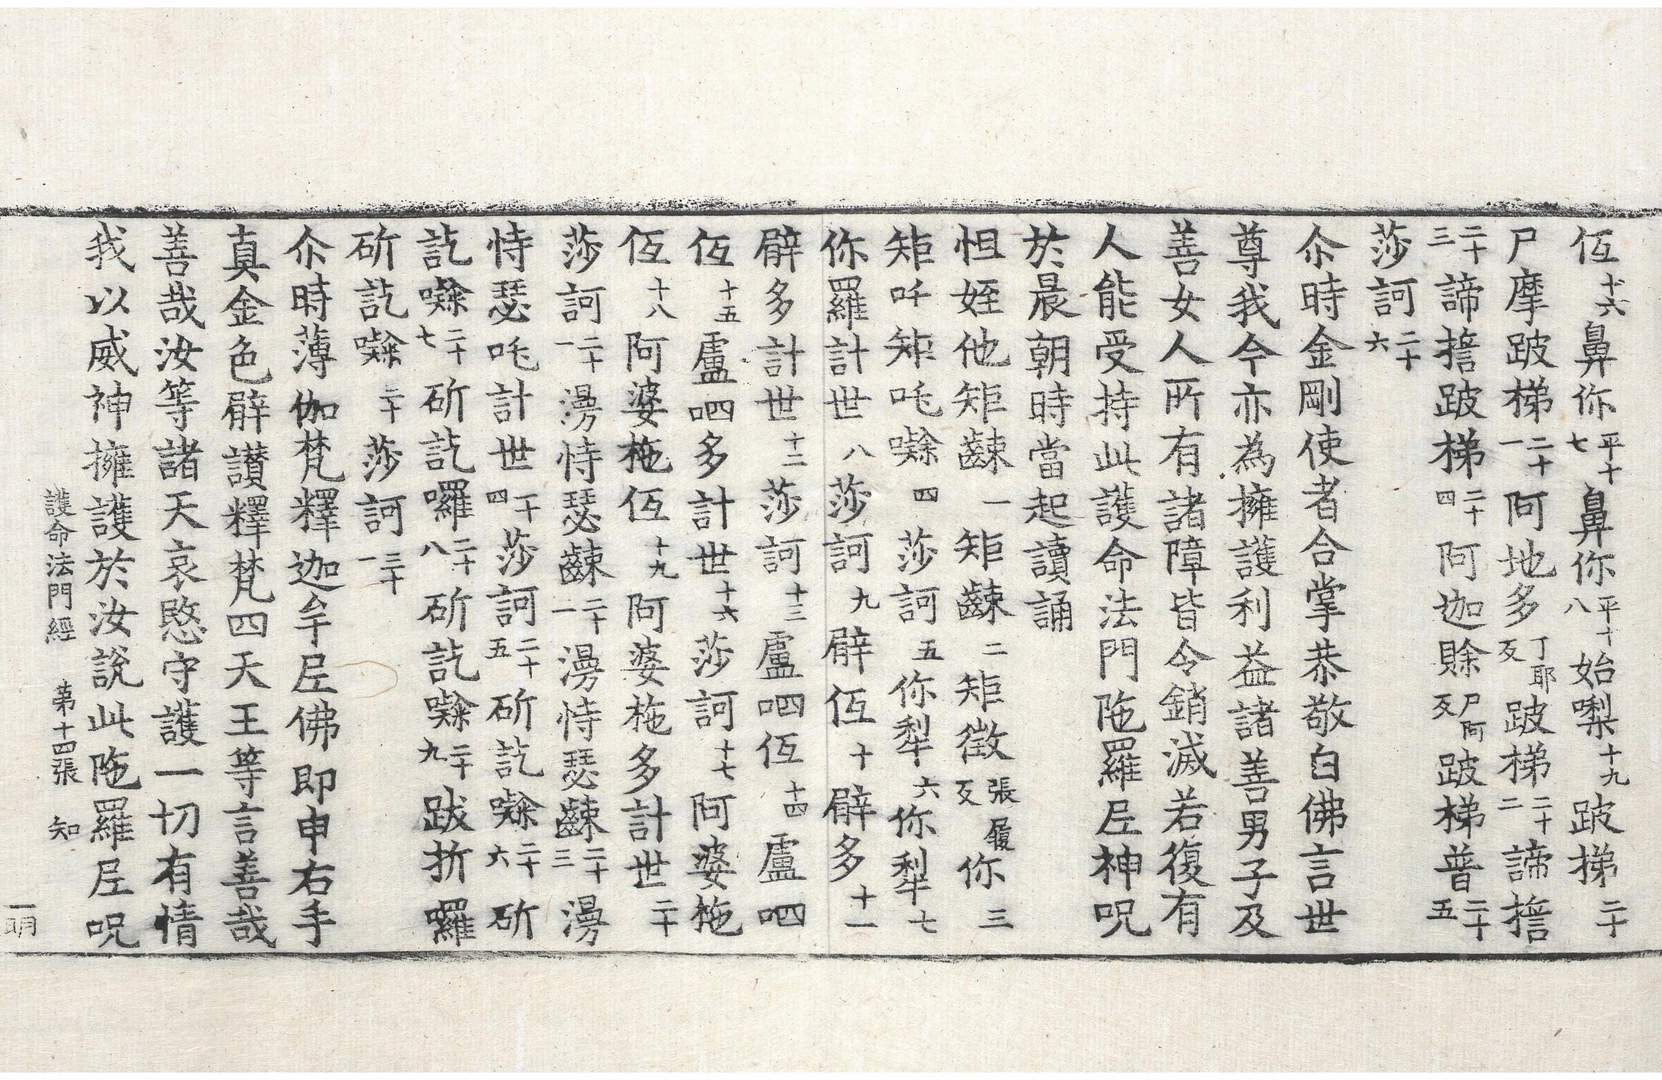 伍十六鼻你平十七鼻你平十八始㗚十九跛梯二十
尸摩跛梯二十一阿地多丁耶反跛梯二十二諦𢷤
二十三諦𢷤跛梯二十四阿迦賒尸阿反跛梯普二十五
莎訶二十六
尒時金剛使者合掌恭敬白佛言世
尊我今亦為擁護利益諸善男子及
善女人所有諸障皆令銷滅若復有
人能受持此護命法門陁羅𡰱神呪
於晨朝時當起讀誦
怛姪他矩𪘨一矩𪘨二矩徵張履反你三
矩吒矩吒㘕四莎訶五你犁六你犁七
你羅計世八莎訶九擗伍十擗多十一
擗多計世十二莎訶十三盧呬伍十四盧呬
伍十五盧呬多計世十六莎訶十七阿婆柂
伍十八阿婆柂伍十九阿婆柂多計世二十
莎訶二十一漫恃瑟𪘨二十一漫恃瑟𪘨二十三漫
恃瑟吒計世二十四莎訶二十五斫訖㘕二十六斫
訖㘕二十七斫訖囉二十八斫訖㘕二十九跋折囉
斫訖㘕三十莎訶三十一
尒時薄伽梵釋迦牟𡰱佛即申右手
真金色臂讃釋梵四天王等言善哉
善哉汝等諸天哀愍守護一切有情
我以威神擁護於汝說此陁羅𡰱呪
護命法門經 第十四張 知